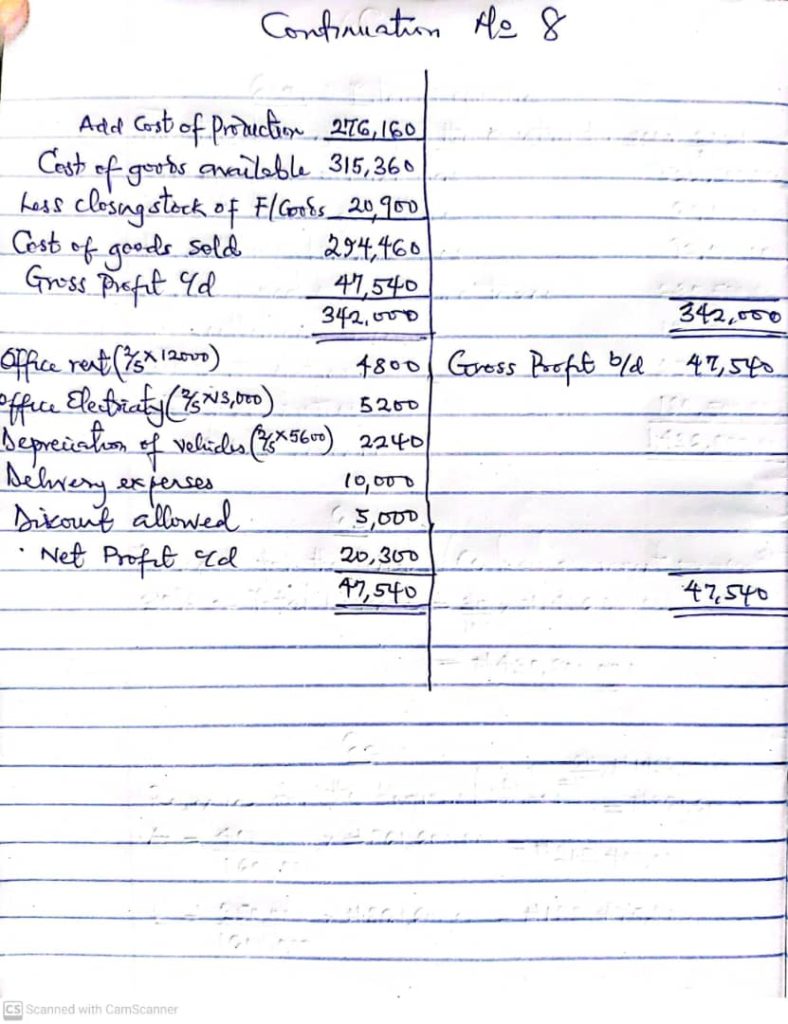 Continuation No 8
Add Cost of Production 276,160
Cost of goods available 315,360
Less closing stock of F/Goods 20,900
Cost of goods sold 294,460
Gross Profit c/d 47,540
342,000 342,000
Office rent (2/5 x 12000) 4800 Gross Profit b/d 47,540
Office Electricity (2/5 x 13,000) 5200
Depreciation of vehicles (2/5 x 5600) 2240
Delivery expenses 10,000
Discount allowed 5,000
Net Profit c/d 20,300
47,540 47,540
CS Scanned with CamScanner